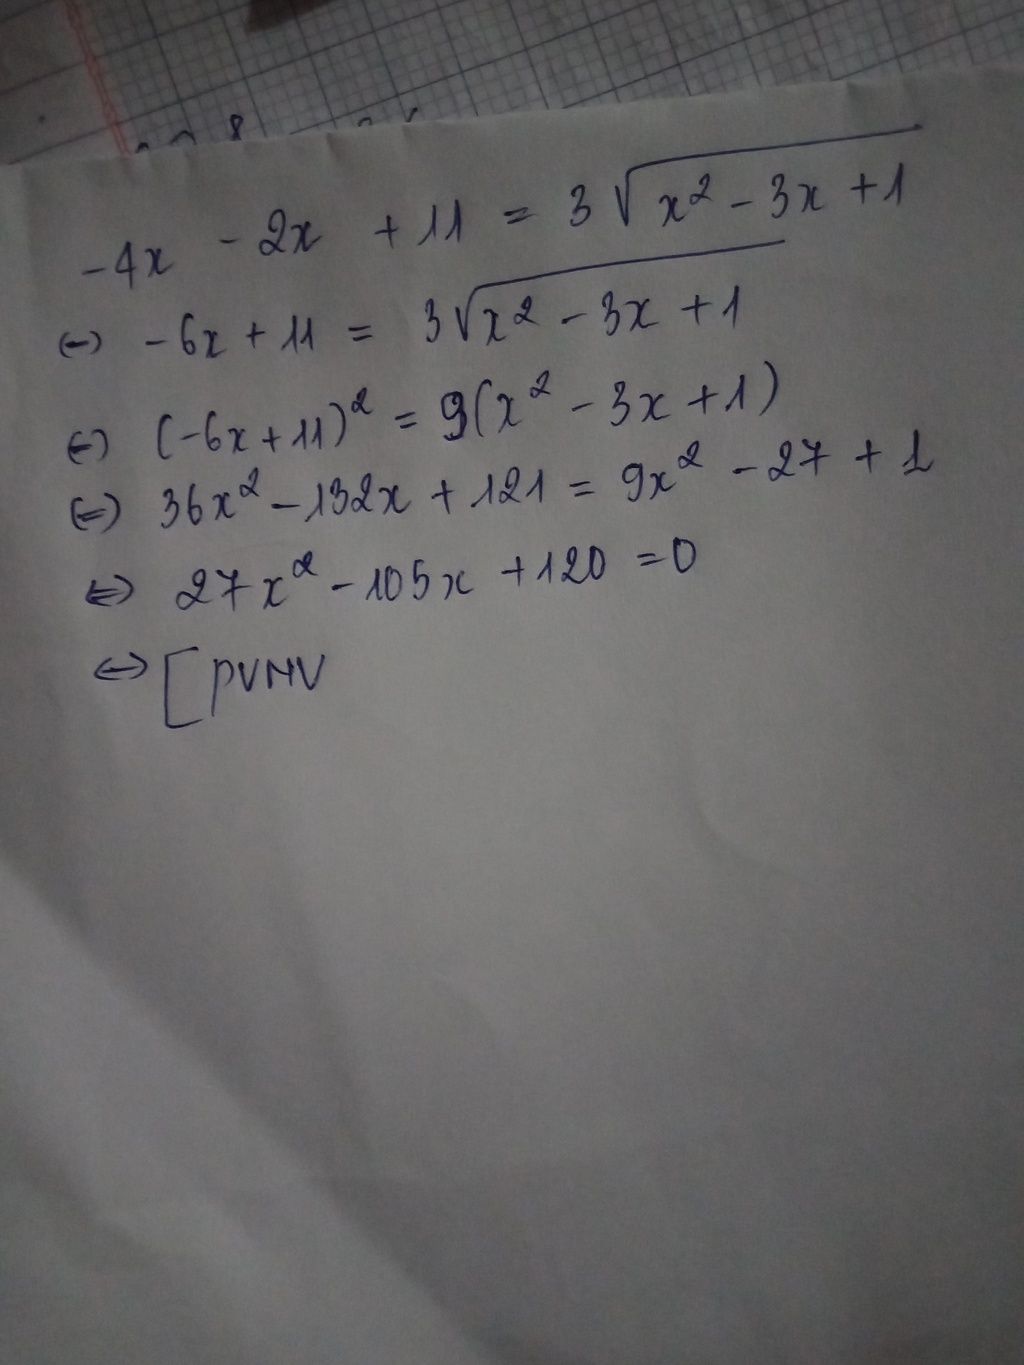 -4x - 2x + 11 = 3√(x² - 3x + 1)
(=) -6x + 11 = 3√(x² - 3x + 1)
(=) (-6x + 11)² = 9(x² - 3x + 1)
(=) 36x² - 132x + 121 = 9x² - 27 + 1
⇔ 27x² - 105x + 120 = 0
⇔ [ PVNV